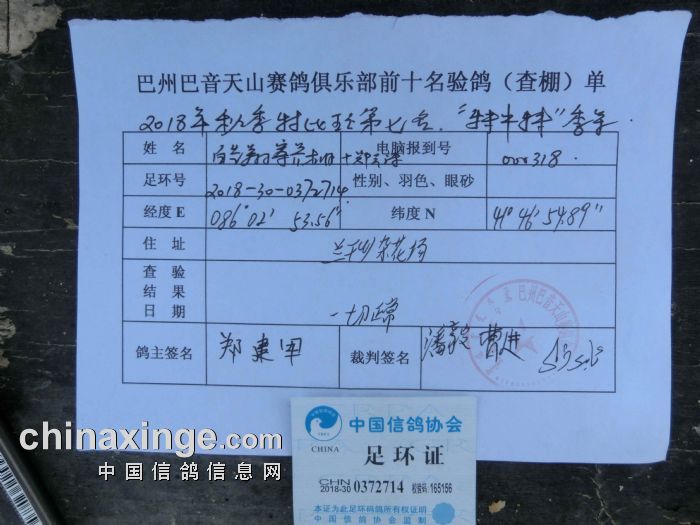 巴州巴音天山赛鸽俱乐部前十名验鸽（查棚）单
2018年秋季特比环第七名
姓 名 电脑报到号 000318
足环号 2018-30-0372714 性别、羽色、眼砂
经度E 086°02′ 53.56″ 纬度N 41°46′54.89″
住 址
查 验
结 果
日 期 一切正常
鸽主签名 郑建军 裁判签名 曹进
巴州巴音天山
中国信鸽协会
CHINA 足环证
CHN
2018-30 0372714 校验码:165156
本证为此足环码鸽所有权证明
中国信鸽协会监制
chinaxinge.com
中国信鸽信息网